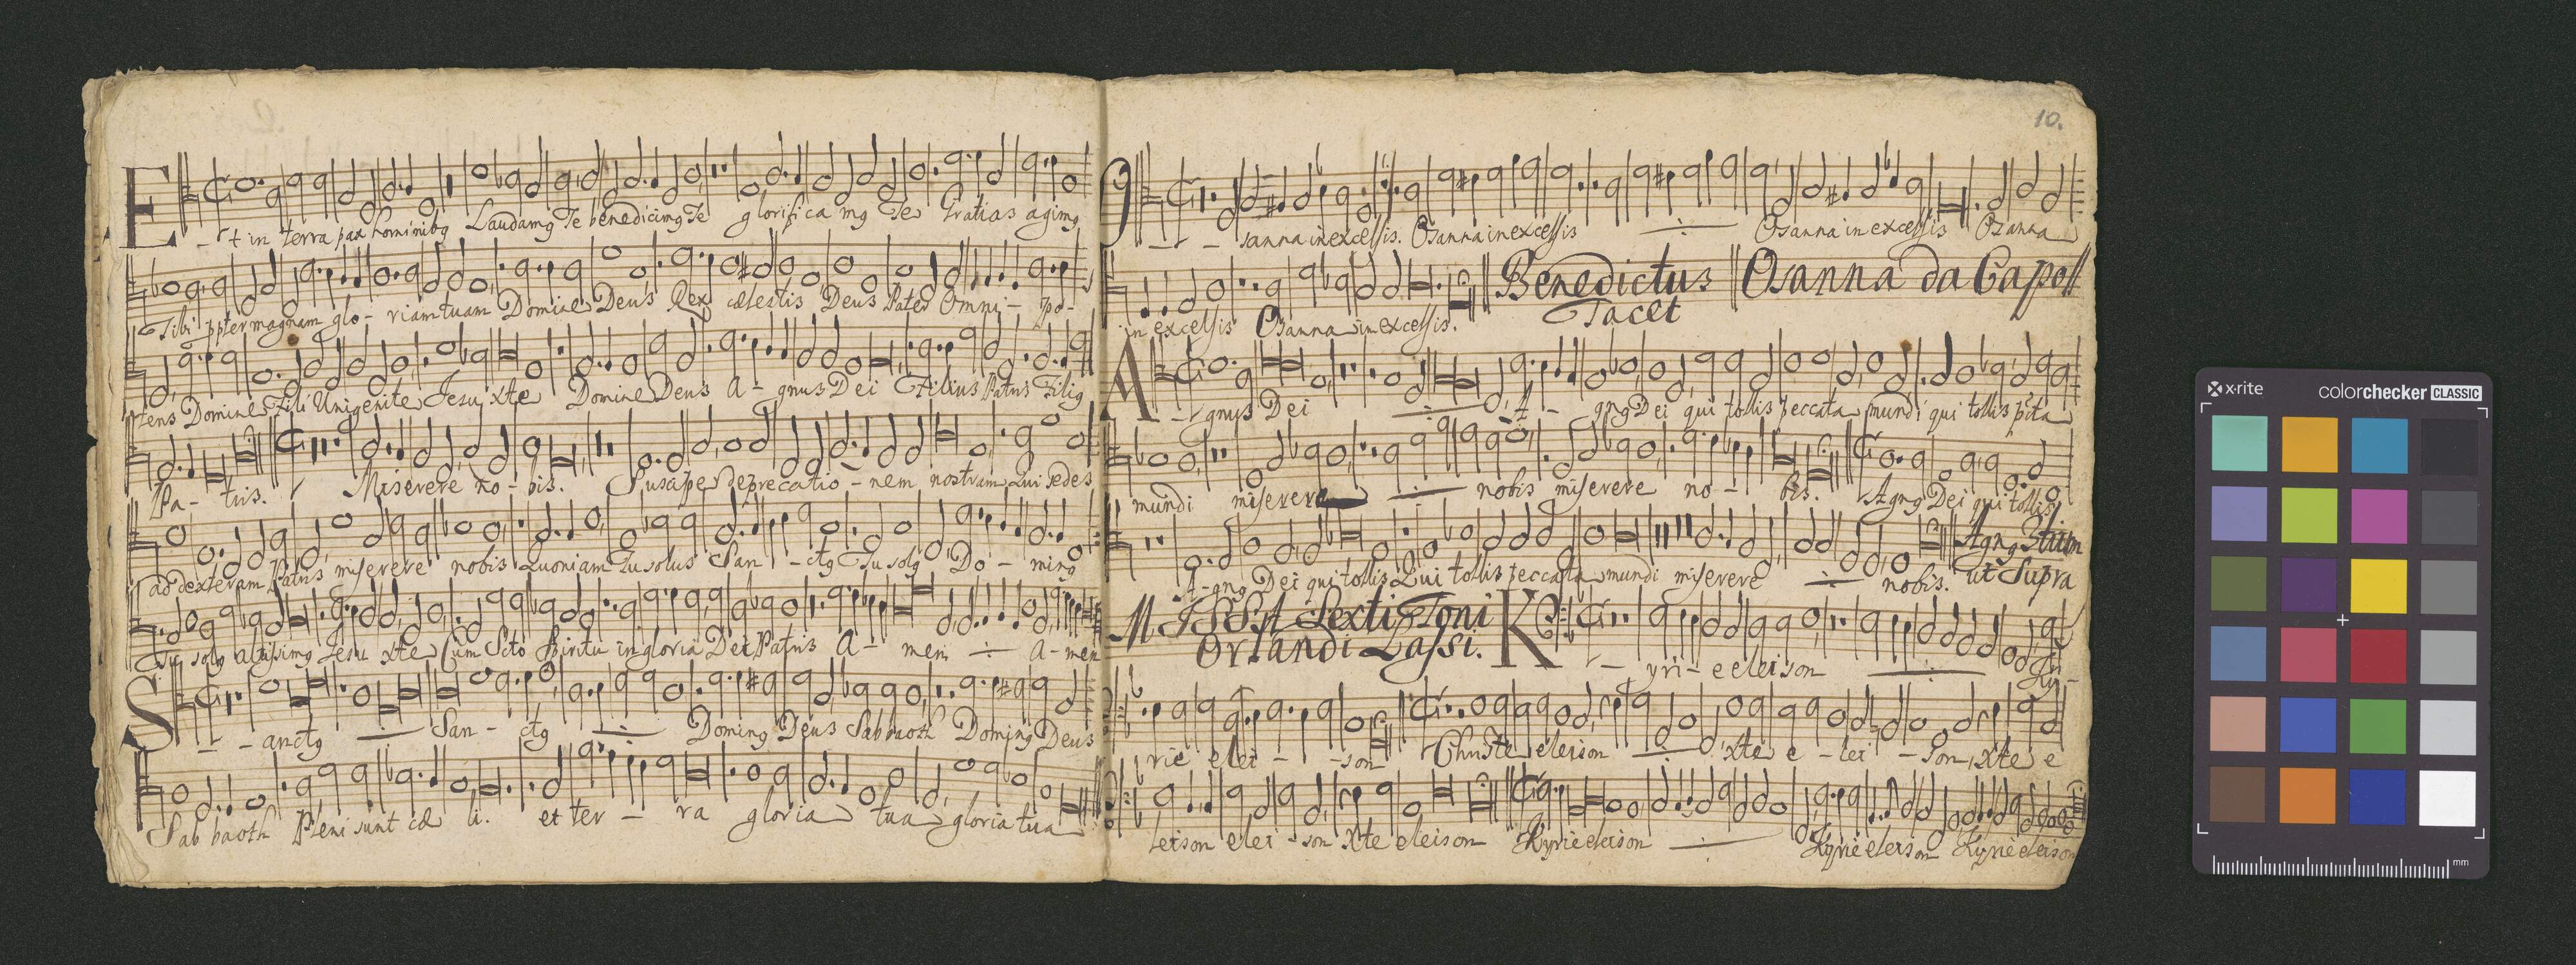 Et in terra pax hominibg Laudamg Te benedicimg Te glorifica mg Te Gratias agimg
Tibi ppter magnam glo- riam tuam Domine Deus Rex cælestis Deus Pater Omni- po-
tens Domine Fili Unigenite Jesu xte Domine Deus A- gnus Dei Filius Patris Filig
Pa- tris. Miserere no- bis. Suscipe deprecatio- nem nostram Qui sedes
ad dexteram Patris miserere nobis Quoniam Tu solus San- ctg Tu solg Do- ming
Tu solg altissimg Jesu xte Cum Scto Spiritu in gloria Dei Patris A- men ÷ A- men
S- - anctg ÷ San- ctg ÷ Doming Deus Sabbaoth Doming Deus
Sabbaoth Pleni sunt cæ li. et ter- ra gloria tua gloria tua
10.
O- - - sanna in excelsis. Osanna in excelsis ÷ Osanna in excelsis Osanna
in excelsis Osanna in excelsis.
Benedictus
Tacet
Osanna da Capo
A- gnus Dei ÷ A- gng Dei qui tollis peccata mundi qui tollis pcta
mundi miserere ÷ nobis miserere no- bis. Agng Dei qui tollis
A- gng Dei qui tollis Qui tollis peccata mundi miserere ÷ nobis.
Agng
ut Supra
MISSA Sexti Toni
Orlandi Lassi.
K- yri- e eleison ÷ Ky-
rie elei- -son Christe eleison ÷ xte e- lei- son, xte e
leison elei- son Xte eleison Kyrie eleison ÷ Kyrie eleison Kyrie eleison
x-rite
colorchecker CLASSIC
mm